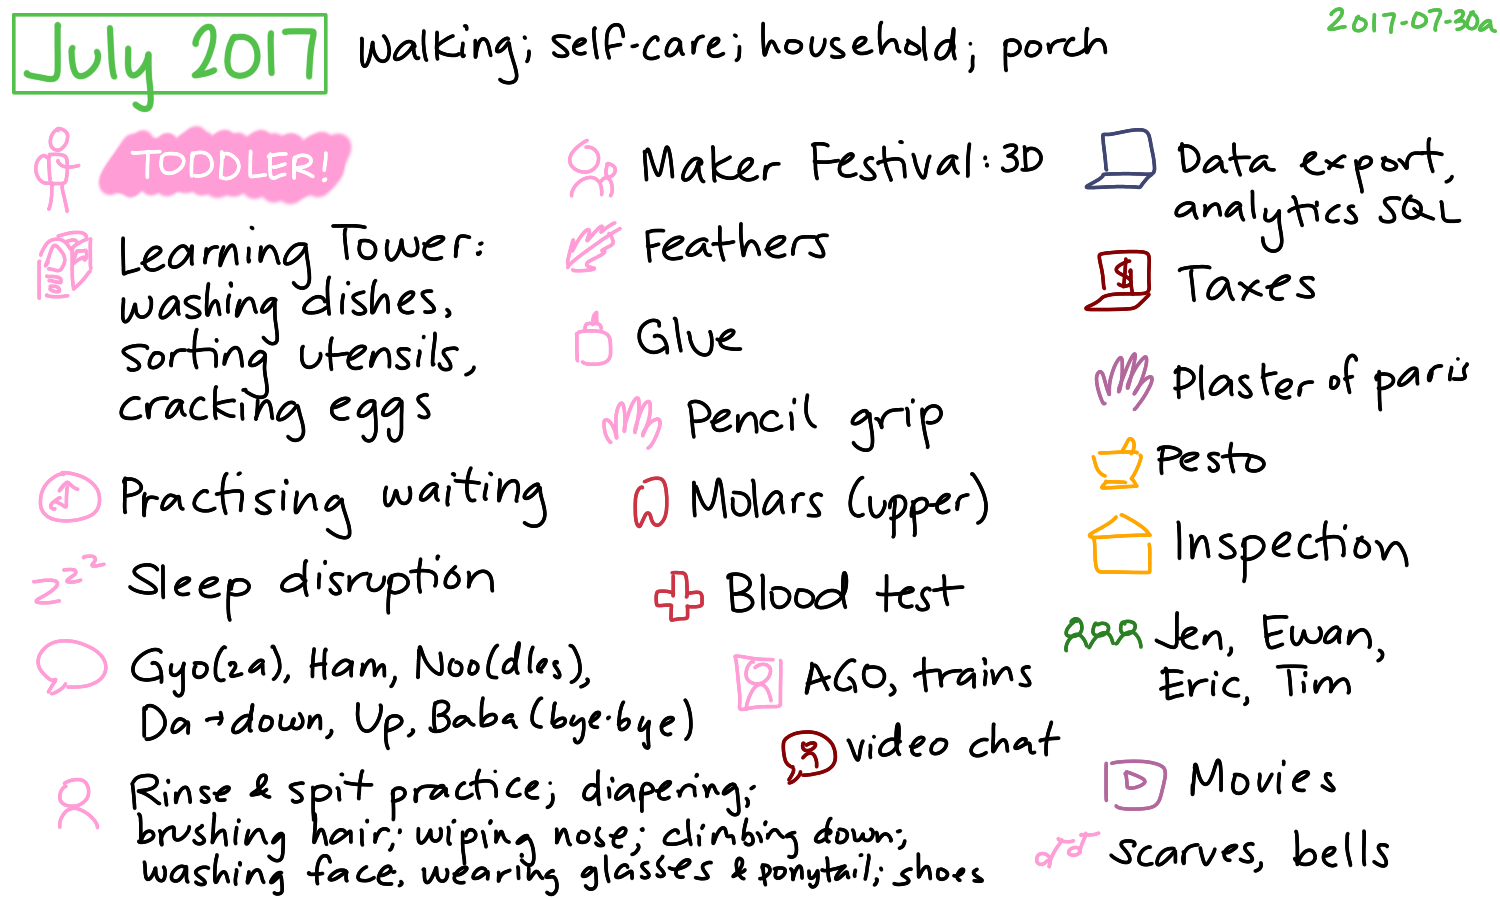 July 2017
Walking; self-care; household; porch
2017-07-30a
TODDLER!
Learning Tower:
washing dishes,
sorting utensils,
cracking eggs
Practising waiting
zzz
Sleep disruption
Gyo(za), Ham, Noo(dles),
Da → down, Up, Baba (bye-bye)
Rinse & spit practice; diapering;
brushing hair; wiping nose; climbing down;
washing face, wearing glasses & ponytail; shoes
Maker Festival: 3D
Feathers
Glue
Pencil grip
Molars (upper)
Blood test
AGO, trains
video chat
Data export,
analytics SQL
$
Taxes
Plaster of paris
Pesto
Inspection
Jen, Ewan,
Eric, Tim
Movies
scarves, bells